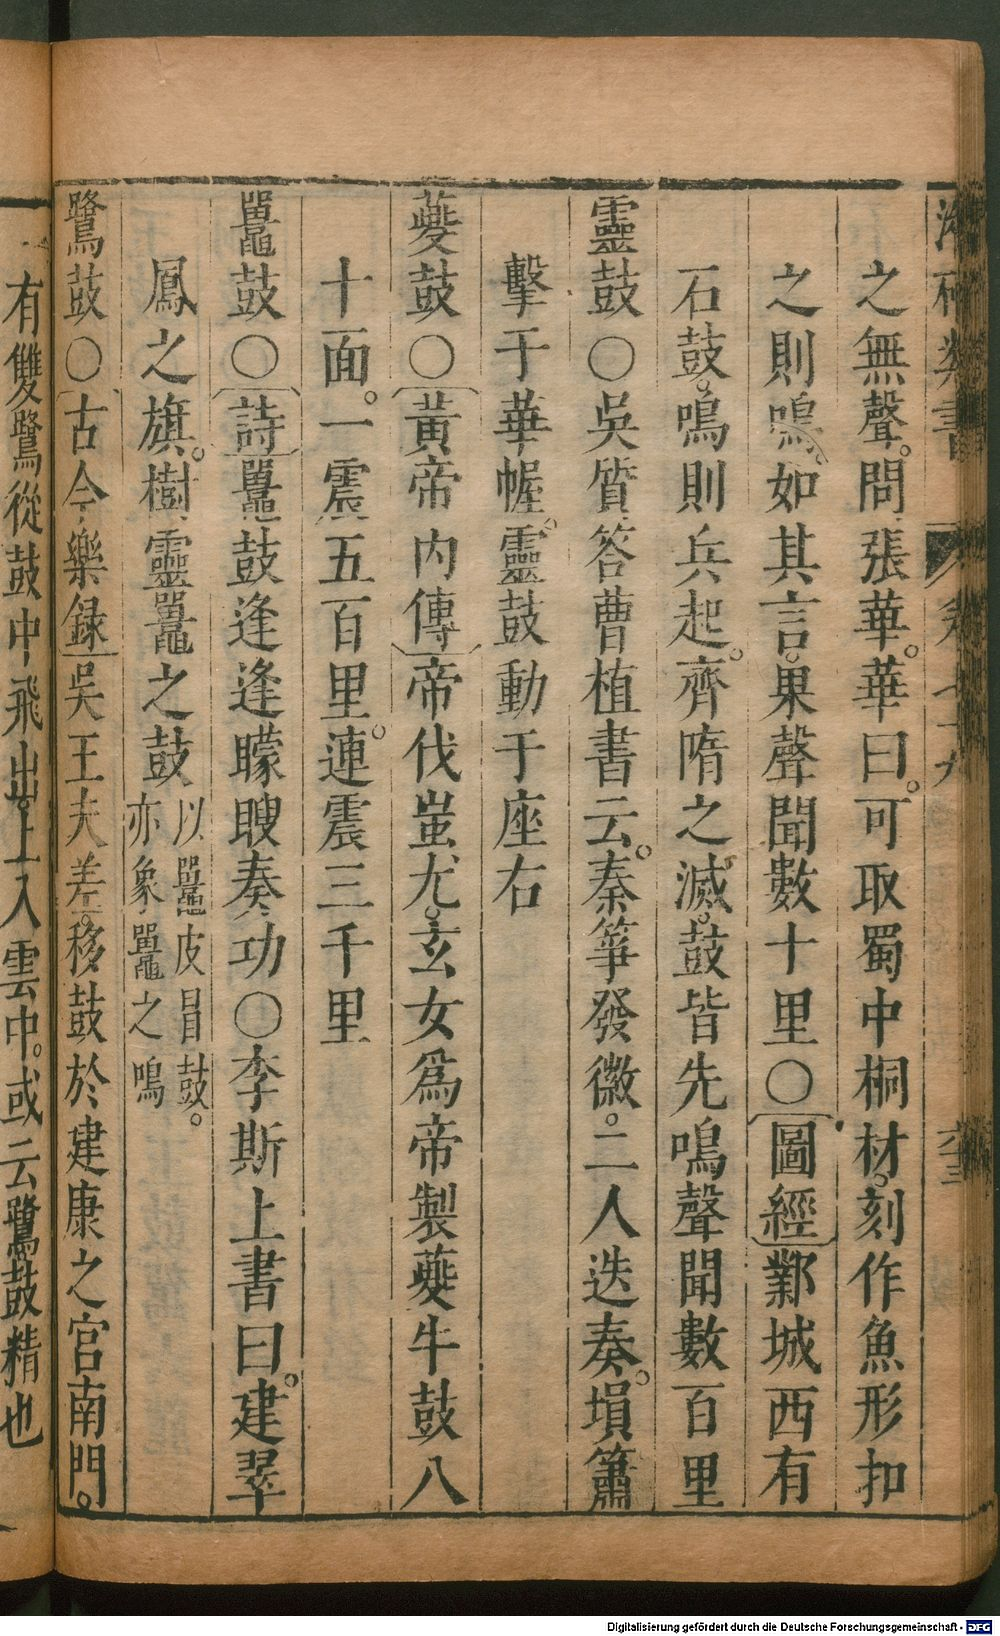 之無聲。問張華。華曰。可取蜀中桐材。刻作魚形扣
之則鳴。如其言。果聲聞數十里○圖經鄴城西有
石鼓。鳴則兵起。齊隋之滅。鼓皆先鳴聲聞數百里
靈鼓○吳質答曹植書云。秦箏發徽。二人迭奏。塤簫
擊于華幄。靈鼓動于座右
夔鼓○黃帝內傳帝伐蚩尤。玄女爲帝製夔牛鼓八
十面。一震五百里。連震三千里
鼉鼓○詩鼉鼓逢逢矇瞍奏功○李斯上書曰。建翠
鳳之旗。樹靈鼉之鼓 以鼉皮冒鼓。亦象鼉之鳴
鷺鼓○古今樂録吳王夫差。移鼓於建康之宮南門。
有雙鷺從鼓中飛出。上入雲中。或云鷺鼓精也
Digitalisierung gefördert durch die Deutsche Forschungsgemeinschaft - DFG